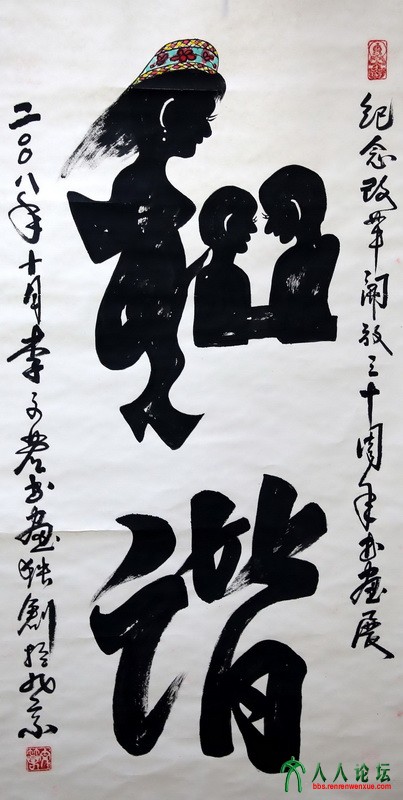 纪念改革开放三十周年书画展
和谐
二〇〇八年十月李书画独創於北京
人人论坛
bbs.renrenwenxue.com